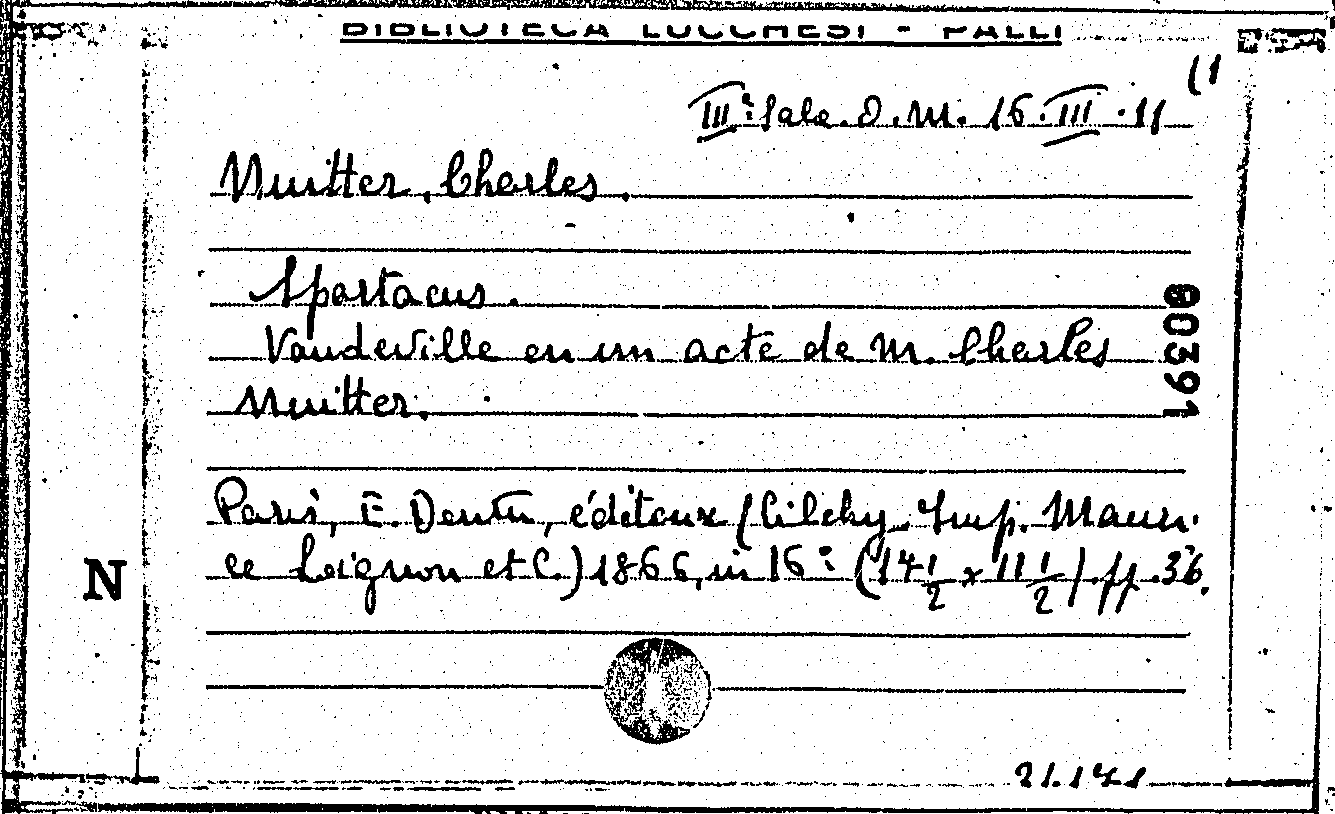 BIBLIOTECA LUCCHESI - PALLI
(1
IIIª Sala. O. M. 16. III. 11
Nuitter, Charles.
Spartacus.
Vaudeville en un acte de M. Charles
Nuitter.
00391
Paris, E. Dentu, éditeur (Clichy. Imp. Mauri-
ce Loignon et C.) 1866, in 16° (14 1/2 x 11 1/2). pp. 36.
N